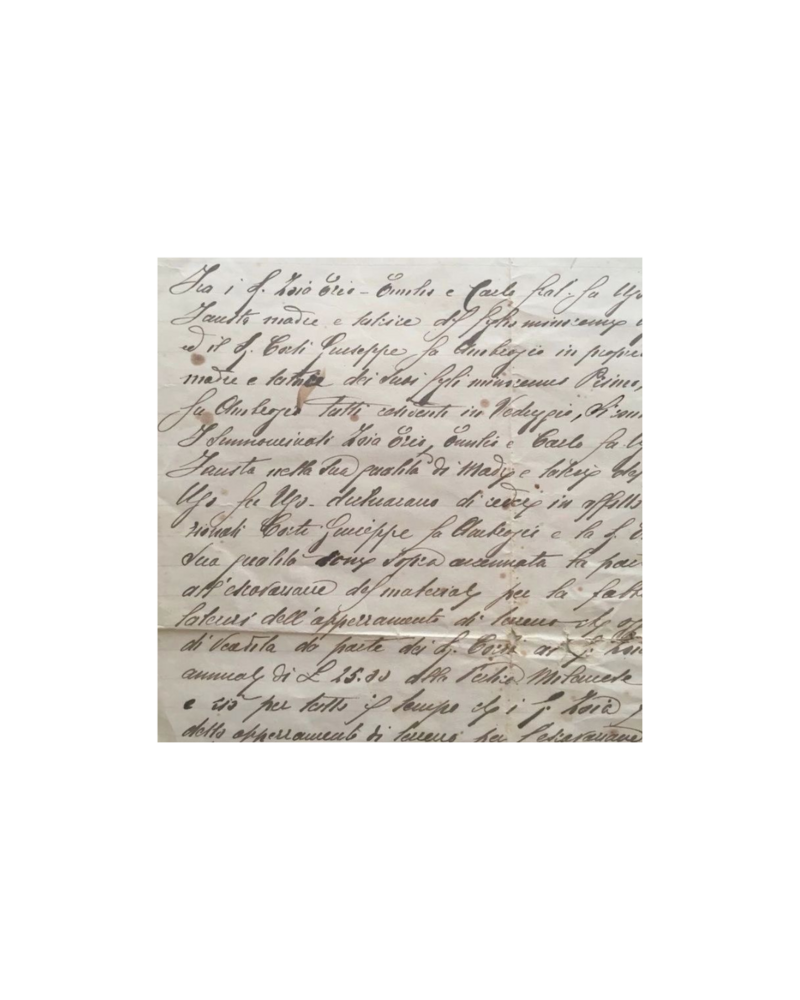 Tra i S. Zoia Eric - Emilio e Carlo frat. fu Ugo
Fausta madre e tutrice dei figli minorenni
ed il S. Corti Giuseppe fu Ambrogio in proprio
madre e tutrice dei suoi figli minorenni Primo,
fu Ambrogio tutti residenti in Veduggio, Si
I sunnominati Zoia Eric, Emilio e Carlo fu
Fausta nella sua qualità di Madre e tutrice
Ugo fu Ugo - dichiarano di cedere in affitto
zionati Corti Giuseppe fu Ambrogio e la S.
sua qualità come sopra accennata la
all'escavazione del materiale per la
laterizi dell'appezzamento di terreno che
di vendita da parte dei S. Corti ai S. Zoia
annuale di £ 25.30 alla Pertica Milanese
e ciò per tutto il tempo che i S. Zoia
detto appezzamento di terreno per l'escavazione